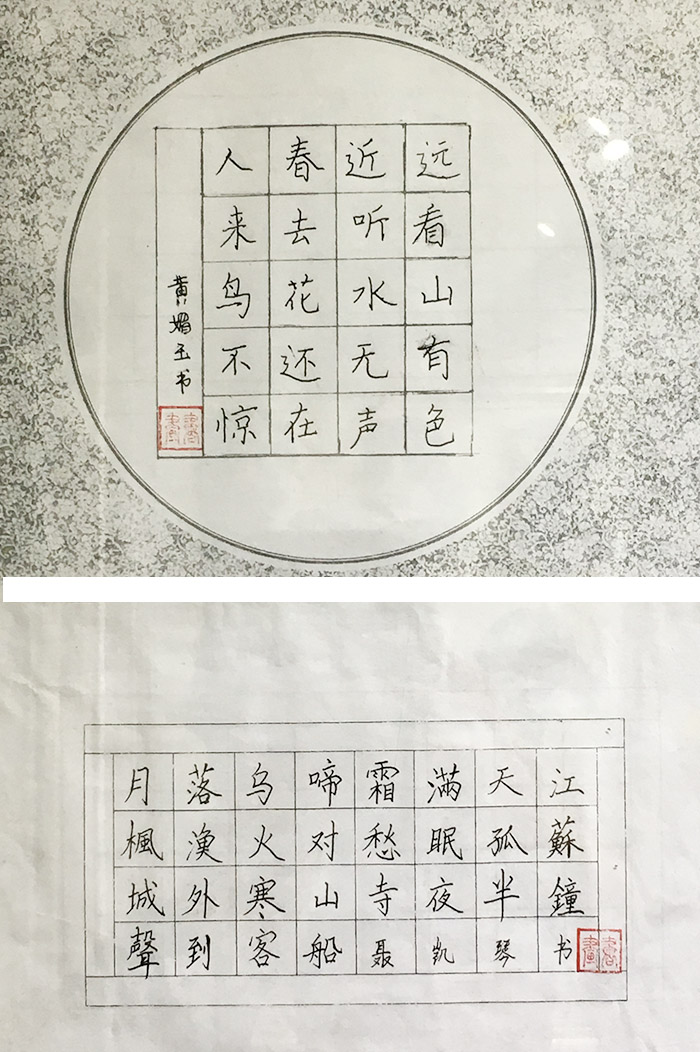 远看山有色
近听水无声
春去花还在
人来鸟不惊
黄媚玉书
月落乌啼霜滿天江
楓渔火对愁眠孤蘇
城外寒山寺夜半鐘
聲到客船聂凯琴书